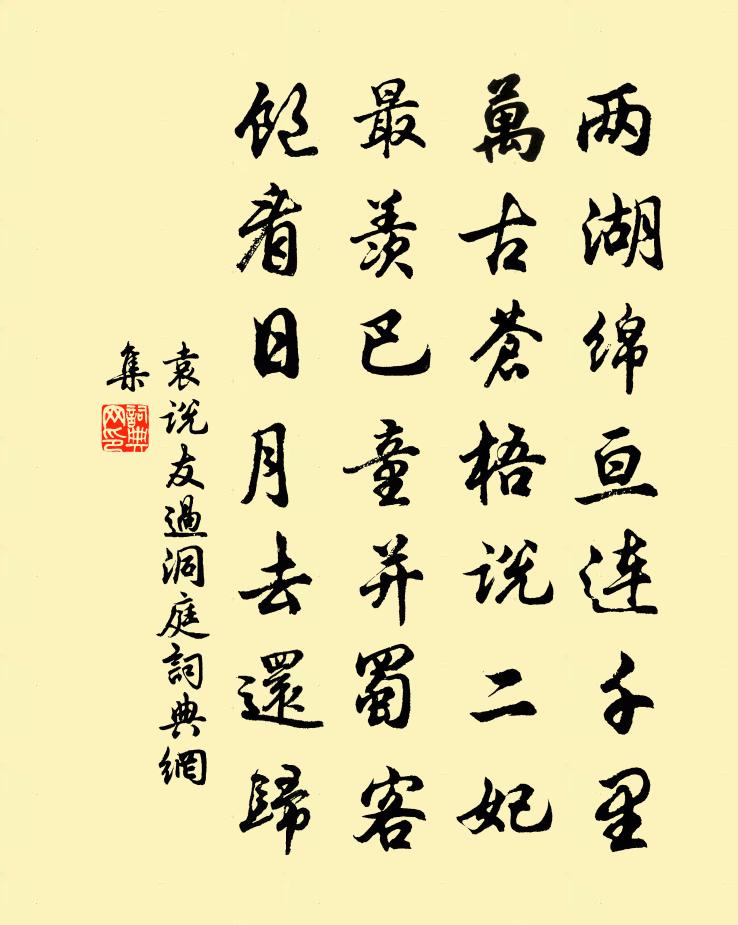 两湖绵亘连千里
萬古蒼梧说二妃
最羡巴童并蜀客
饱看日月去還歸
袁说友過洞庭詞典網
集
詞典网印